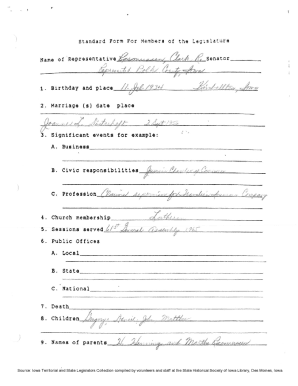 Standard Form For Members of the Legislature
Name of Representative Rasmussen, Clark R. Senator
Represented Polk County, Iowa
1. Birthday and place 11 July 1934
2. Marriage (s) date place
3. Significant events for example:
A. Business
B. Civic responsibilities Junior Chamber of Commerce
C. Profession
4. Church Membership Lutheran
5. Sessions served 61st General Assembly 1965
6. Public Offices
A. Local
B. State
C. National
7. Death
8. Children
9. Names of parents and Martha Rasmussen
Source: Iowa Territorial and State Legislators Collection compiled by volunteers and staff at the State Historical Society of Iowa Library, Des Moines, Iowa.